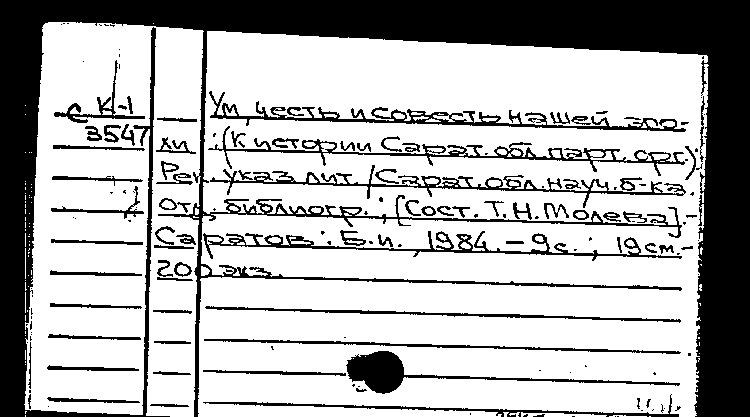 С К-1
3547
Ум, честь и совесть нашей эпо-
хи : (К истории Сарат. обл. парт. орг.):
Рек. указ. лит. / Сарат. обл. науч. б-ка.
отд. библиогр. ; [Сост. Т.Н. Молева]. -
Саратов : Б.и., 1984. - 9с. ; 19см. -
200 экз.